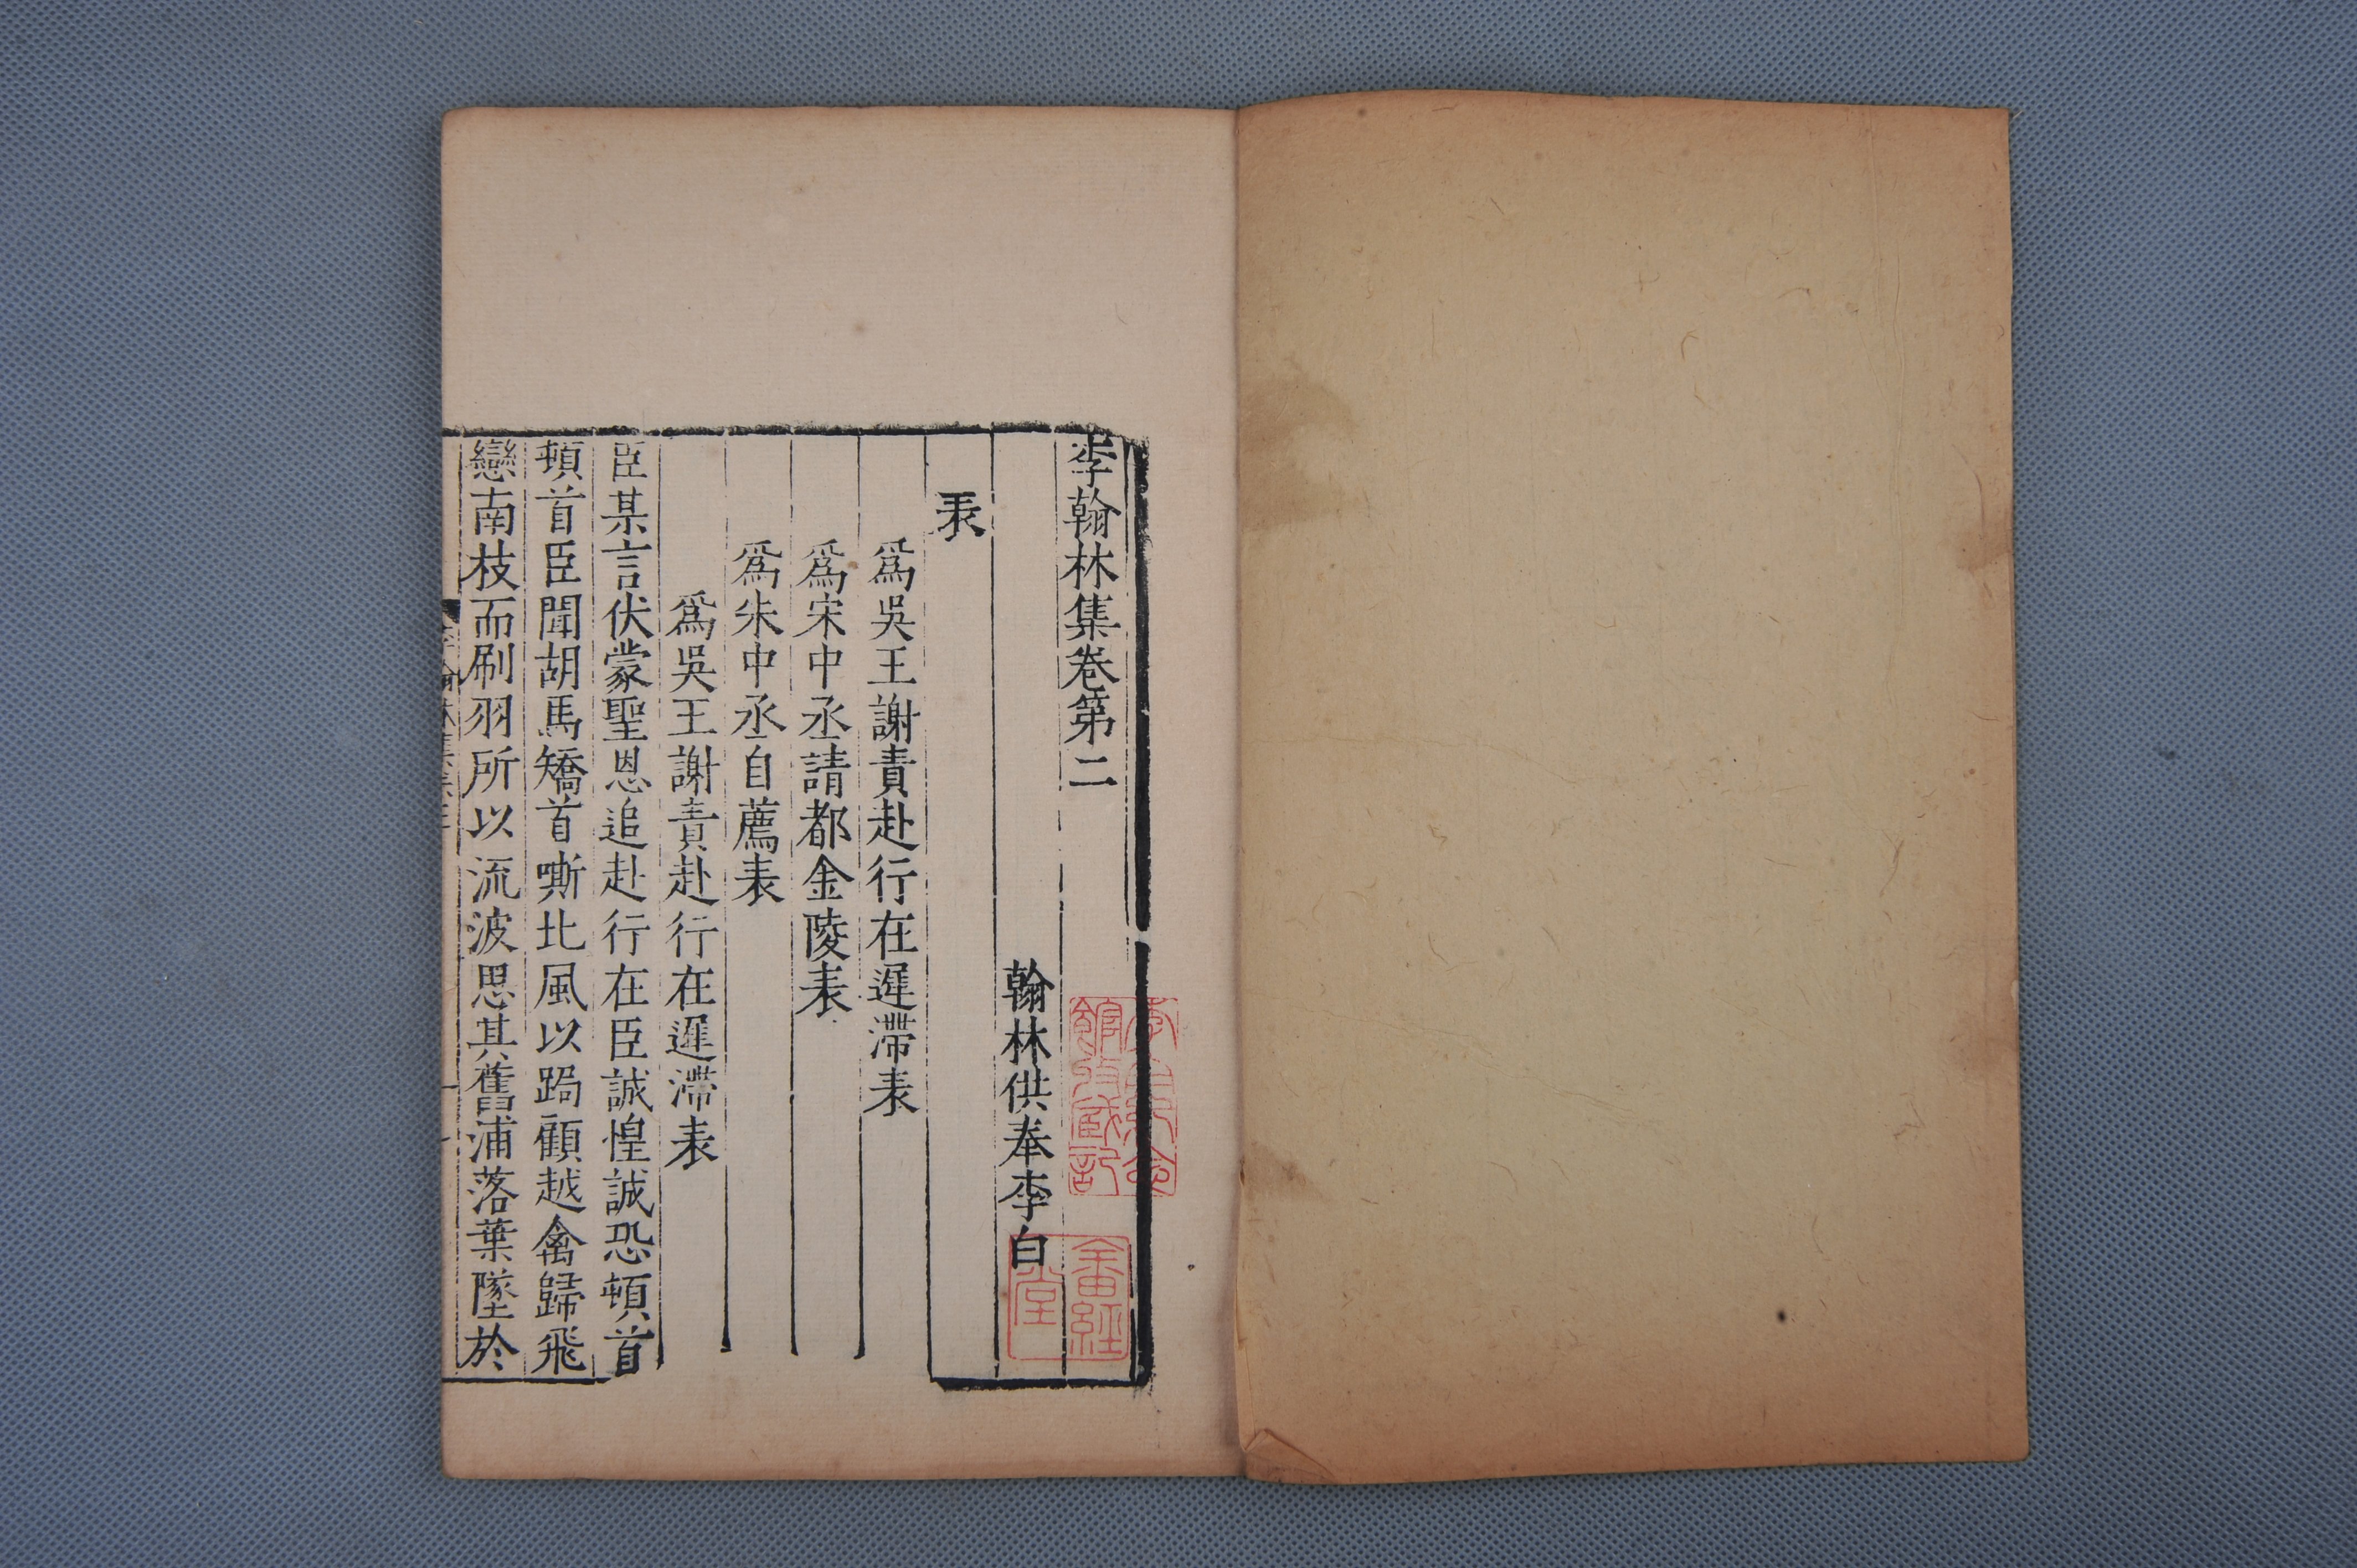 李翰林集卷第二
翰林供奉李白
表
爲吳王謝責赴行在遲滯表
爲宋中丞請都金陵表
爲宋中丞自薦表
爲吳王謝責赴行在遲滯表
臣某言伏蒙聖恩追赴行在臣誠惶誠恐頓首
頓首臣聞胡馬矯首嘶北風以跼顧越禽歸飛
戀南枝而刷羽所以流波思其舊浦落葉墜於
館收藏記
番經堂